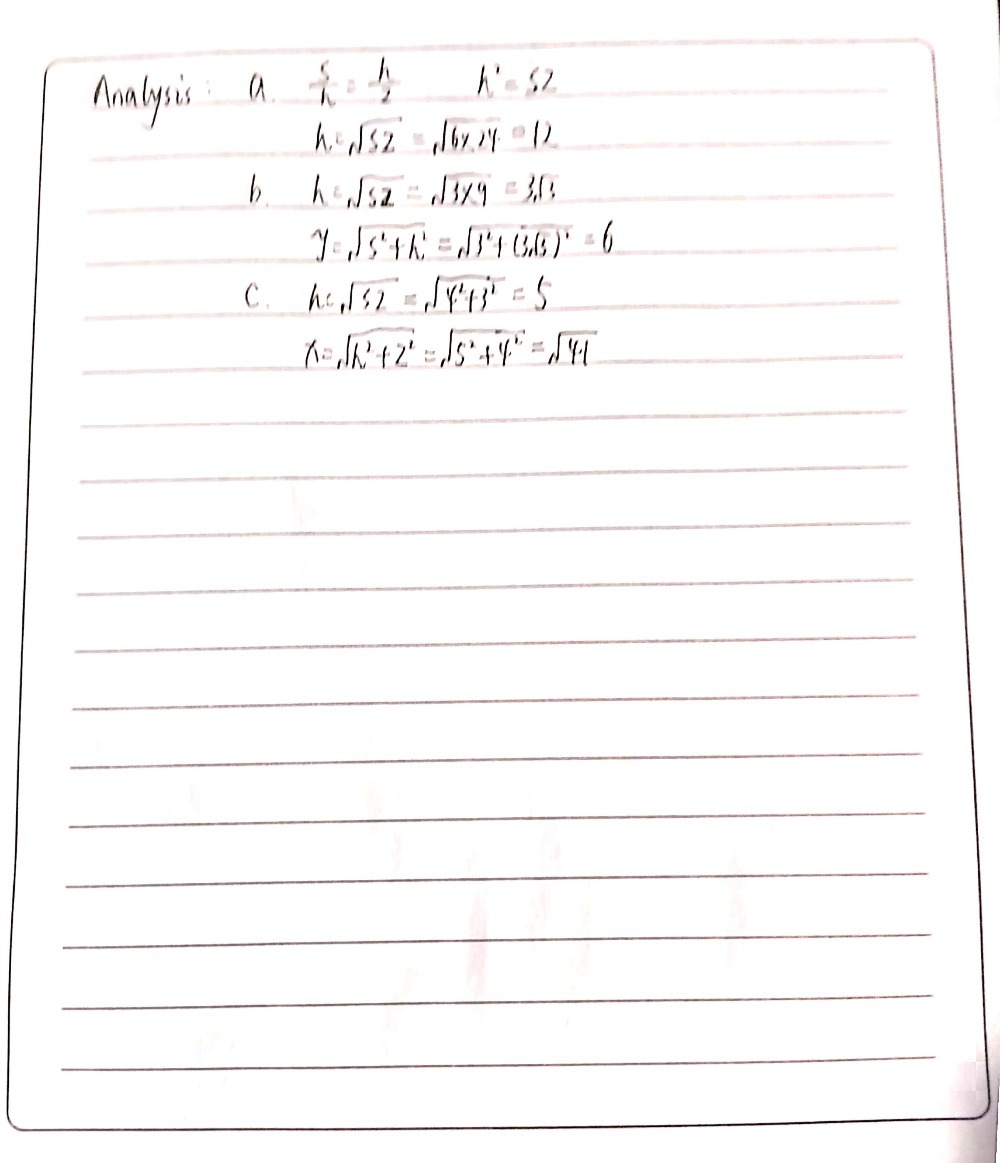 Analysis: a. s/h = h/z h² = sz
h = √sz = √6×24 = 12
b. h = √sz = √3×9 = 3√3
y = √s²+h² = √3²+(3√3)² = 6
c. h = √sz = √4²+3² = 5
x = √h²+z² = √5²+4² = √41